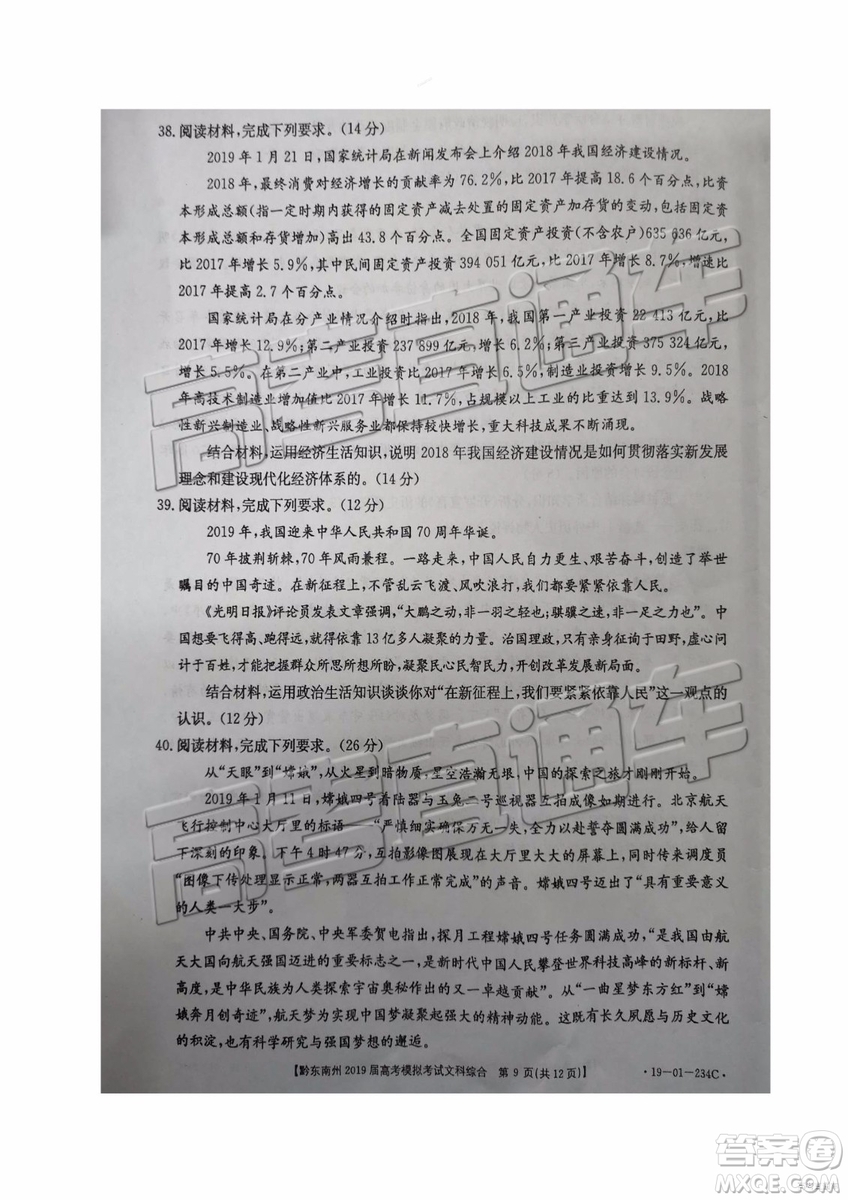 38. 阅读材料,完成下列要求。(14 分)
2019 年 1 月 21 日,国家统计局在新闻发布会上介绍 2018 年我国经济建设情况。
2018 年,最终消费对经济增长的贡献率为 76.2%,比 2017 年提高 18.6 个百分点,比资
本形成总额(指一定时期内获得的固定资产减去处置的固定资产加存货的变动,包括固定资
本形成总额和存货增加)高出 43.8 个百分点。全国固定资产投资(不含农户)635 636 亿元,
比 2017 年增长 5.9%,其中民间固定资产投资 394 051 亿元,比 2017 年增长 8.7%,增速比
2017 年提高 2.7 个百分点。
国家统计局在分产业情况介绍时指出,2018 年,我国第一产业投资 22 413 亿元,比
2017 年增长 12.9%;第二产业投资 237 899 亿元,增长 6.2%;第三产业投资 375 324 亿元,
增长 5.5%。在第二产业中,工业投资比 2017 年增长 6.5%,制造业投资增长 9.5%。2018
年高技术制造业增加值比 2017 年增长 11.7%,占规模以上工业的比重达到 13.9%。战略
性新兴制造业、战略性新兴服务业都保持较快增长,重大科技成果不断涌现。
结合材料,运用经济生活知识,说明 2018 年我国经济建设情况是如何贯彻落实新发展
理念和建设现代化经济体系的。(14 分)
39. 阅读材料,完成下列要求。(12 分)
2019 年,我国迎来中华人民共和国 70 周年华诞。
70 年披荆斩棘,70 年风雨兼程。一路走来,中国人民自力更生、艰苦奋斗,创造了举世
瞩目的中国奇迹。在新征程上,不管乱云飞渡、风吹浪打,我们都要紧紧依靠人民。
《光明日报》评论员发表文章强调,“大鹏之动,非一羽之轻也;骐骥之速,非一足之力也”。中
国想要飞得高、跑得远,就得依靠 13 亿多人凝聚的力量。治国理政,只有亲身征询于田野,虚心问
计于百姓,才能把握群众所思所想所盼,凝聚民心民智民力,开创改革发展新局。
结合材料,运用政治生活知识谈谈你对“在新征程上,我们要紧紧依靠人民”这一观点的
认识。(12 分)
40. 阅读材料,完成下列要求。(26 分)
从“天眼”到“嫦娥”,从火星到暗物质,星空浩瀚无垠,中国的探索之旅才刚刚开始。
2019 年 1 月 11 日,嫦娥四号着陆器与玉兔二号巡视器互拍成像如期进行。北京航天
飞行控制中心大厅里的标语——“严慎细实确保万无一失,全力以赴誓夺圆满成功”,给人留
下深刻的印象。下午 4 时 47 分,互拍影像图展现在大厅里大大的屏幕上,同时传来调度员
“图像下传处理显示正常,两器互拍工作正常完成”的声音。嫦娥四号迈出了“具有重要意义
的人类一大步”。
中共中央、国务院、中央军委贺电指出,探月工程嫦娥四号任务圆满成功,“是我国由航
天大国向航天强国迈进的重要标志之一,是新时代中国人民攀登世界科技高峰的新标杆、新
高度,是中华民族为人类探索宇宙奥秘作出的又一卓越贡献”。从“一曲星梦东方红”到“嫦
娥奔月创奇迹”,航天梦为实现中国梦凝聚起强大的精神动能。这既有长久夙愿与历史文化
的积淀,也有科学精神与强国梦想的邂逅。
【黔东南州 2019 届高考模拟考试文科综合 第 9 页(共 12 页)】 ·19-01-234C·
高考直通车
高考直通车
答案圈
MXQE.COM